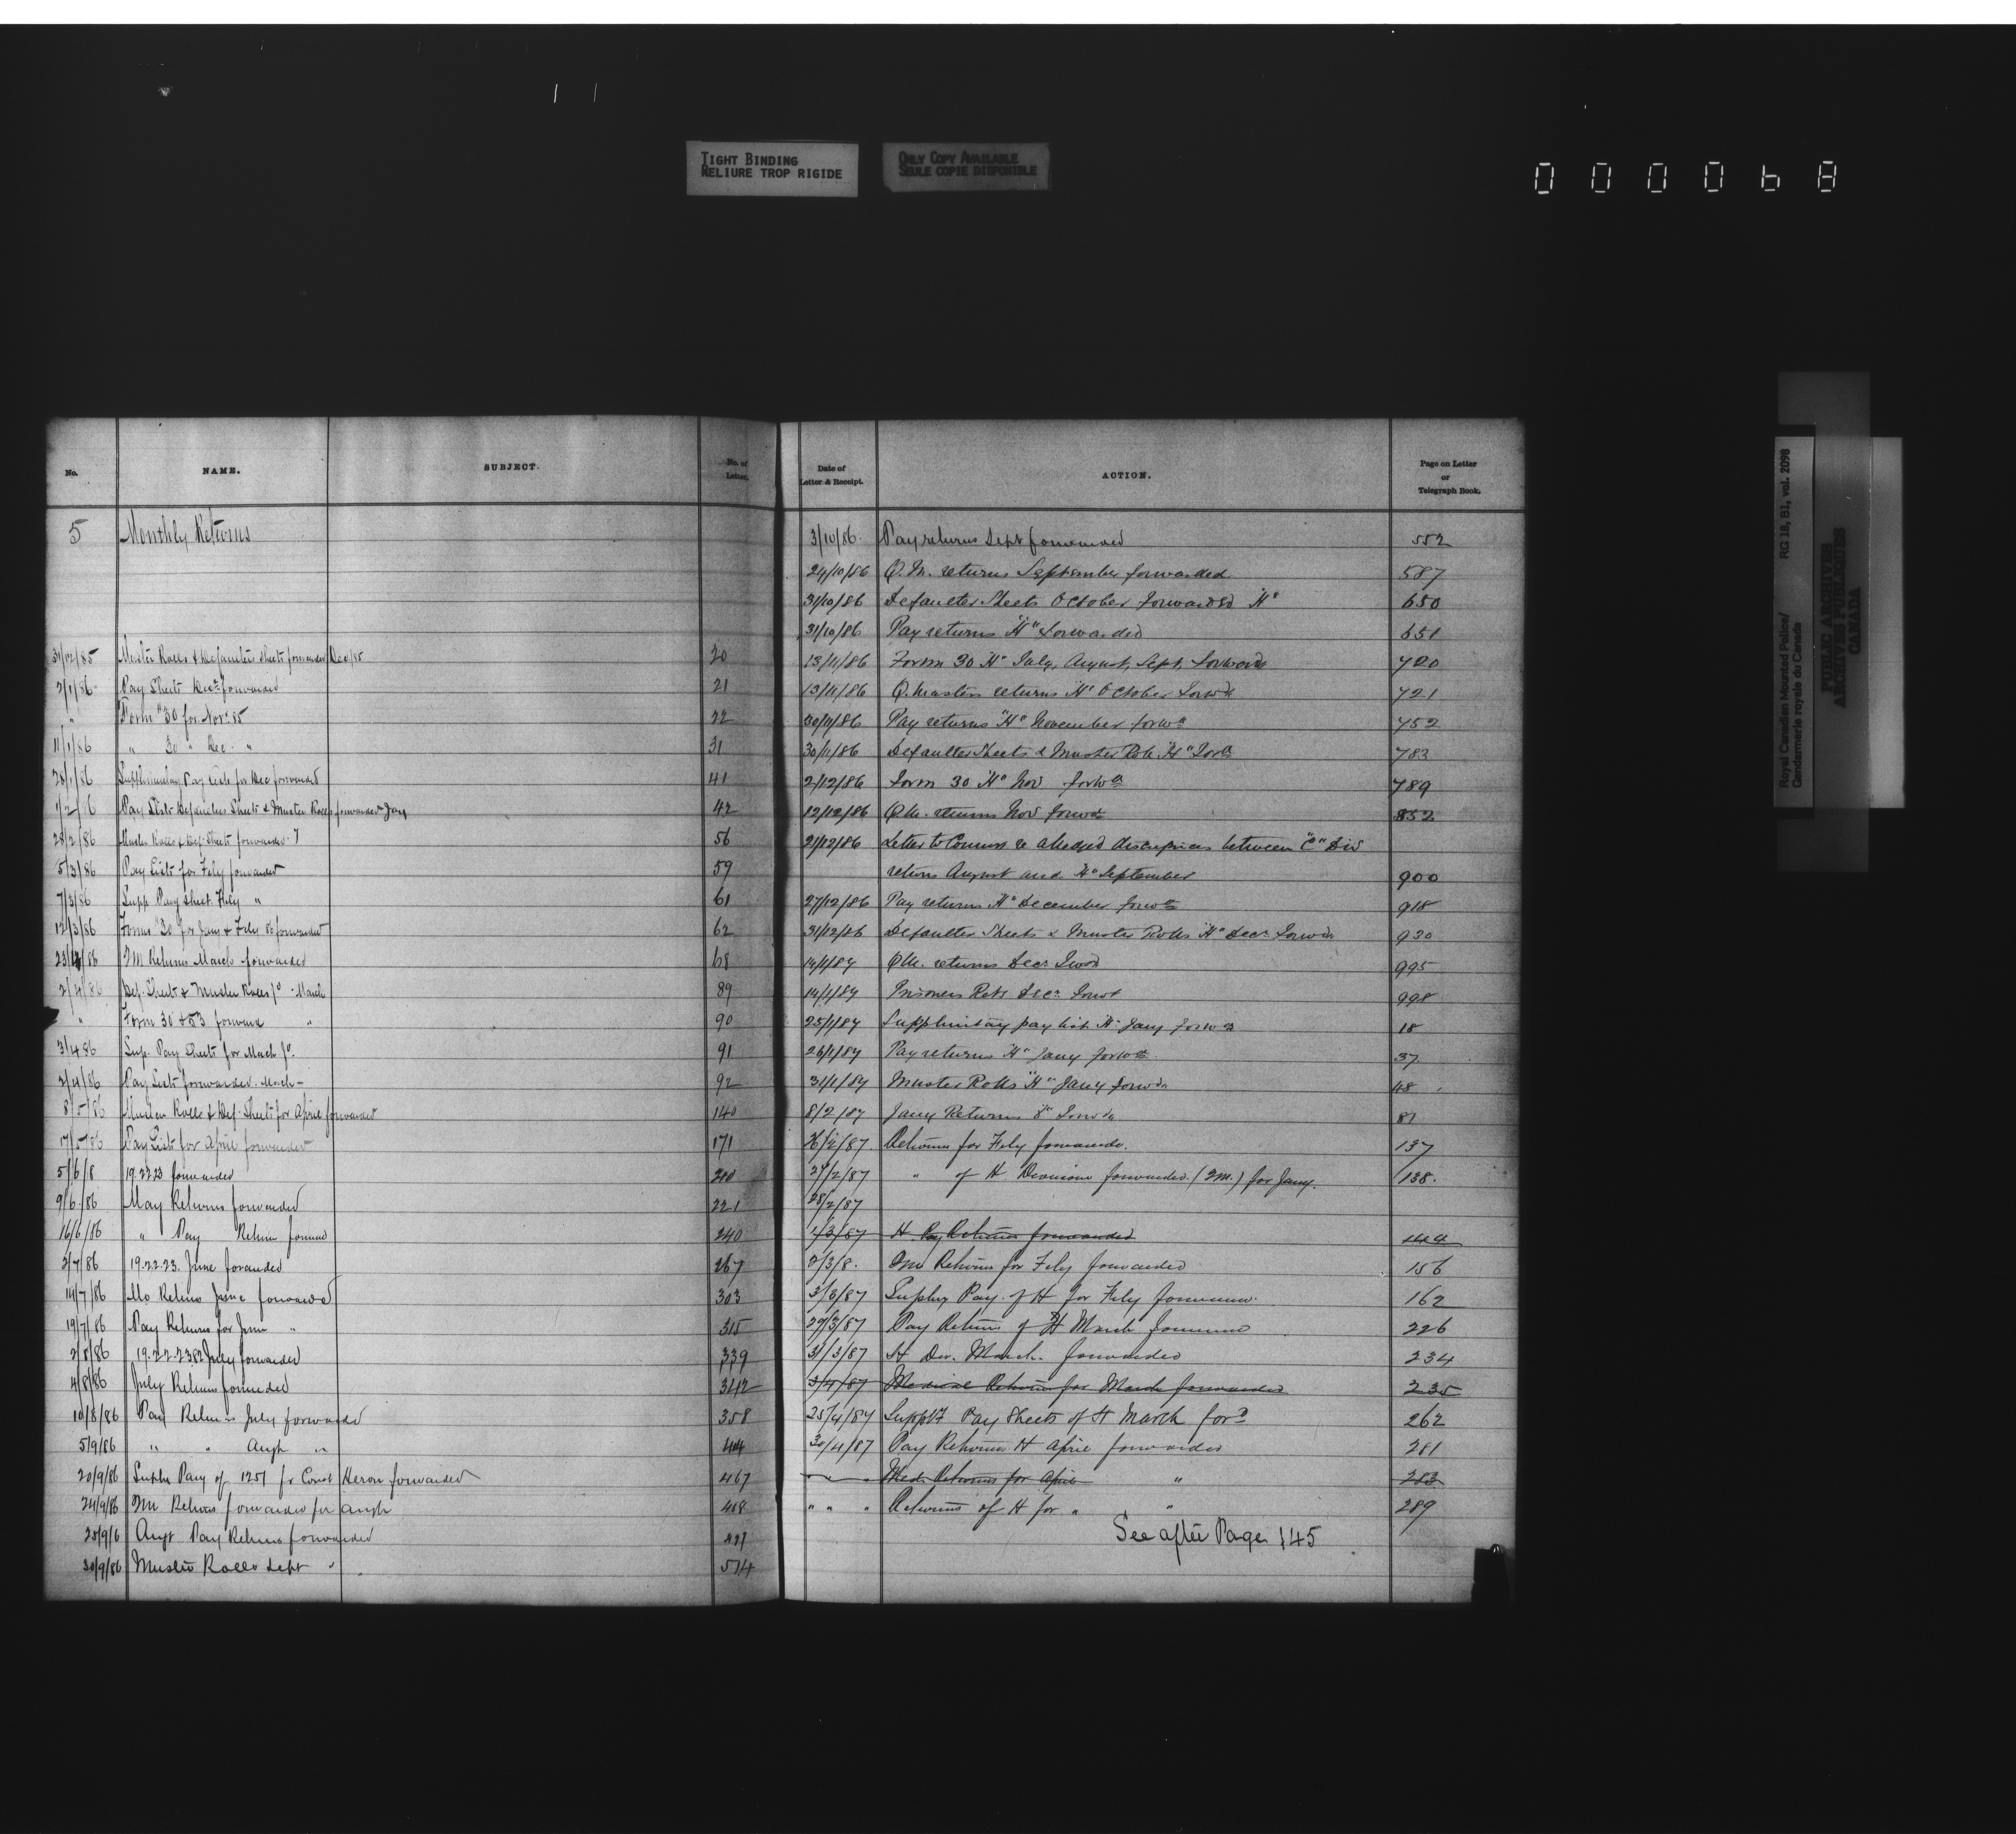 TIGHT BINDING
RELIURE TROP RIGIDE
ONLY COPY AVAILABLE
SEULE COPIE DISPONIBLE
000068
No. NAME. SUBJECT. No. of Letter.
5 Monthly Returns
31/12/85 Muster Rolls & Defaulters Sheets forwarded Dec/85 20
2/1/86 Pay Sheets Decr forwarded 21
" Form "30 for Novr 85 22
11/1/86 " 30 " Dec. " 31
20/1/86 Supplimentary Pay Lists for Dec forwarded 41
1/2/86 Pay Lists Defaulters Sheets & Muster Rolls forwarded Jany 42
28/2/86 Muster Rolls & Def. Sheets forwarded 56
5/3/86 Pay Lists for Feby forwarded 59
7/3/86 Supp. Pay Sheet Feby " 61
12/3/86 Forms "30 for Jany & Feby 86 forwarded 62
86 Returns March forwarded 68
2/4/86 Def. Sheets & Muster Rolls March 89
" Form 30 & 53 forward " 90
3/4 86 Sup. Pay Sheets for Mach 91
3/4/86 Pay Lists forwarded. March - 92
8/5/86 Muster Rolls & Def. Sheets for April forwarded 140
17/5/86 Pay Lists for April forwarded 171
5/6/8 19.22.23 forwarded 210
9/6/86 May Returns forwarded 221
16/6/86 " Pay Return forward 240
2/7/86 19.22.23. June forwarded 267
14/7/86 Mo Returns June forwarded 303
19/7/86 Pay Returns for June " 315
2/8/86 July forwarded 339
4/8/86 July Returns forwarded 342
10/8/86 Pay Returns July forwarded 358
5/9/86 " " Augt " 414
20/9/86 Supler Pay of 1257 fr Const Heron forwarded 467
24/9/86 Returns forwarded for Augt 468
25/9/6 Augt Pay Returns forwarded
30/9/86 Muster Rolls Sept " 514
Date of Letter & Receipt. ACTION. Page on Letter or Telegraph Book.
3/10/86. Pay returns Sept forwarded 552
24/10/86 Q.M. returns September forwarded 587
31/10/86 Defaulter Sheets October forwarded "H" 650
31/10/86 Pay returns "H" forwarded 651
13/11/86 Form 30 "H" July, August, Sept. forward 720
13/11/86 Q.Masters returns "H" October forwd 721
30/11/86 Pay returns "H" November forwd 752
30/11/86 Defaulter Sheets & Muster Rolls "H" forwd 783
2/12/86 Form 30 "H" Nov forwd 789
12/12/86 Q.M. returns Nov forwd 852
21/12/86 Letter to Commr re alledged discrepancies between "C" Div
returns August and "H" September 900
27/12/86 Pay returns "H" December forwd 918
31/12/86 Defaulter Sheets & Muster Rolls "H" Decr forwd 930
14/1/87 Q.M. returns Decr forwd 995
14/1/87 Prisoners Rets Decr forwd 998
25/1/87 Supplimentary pay list "H" Jany forwd 18
26/1/87 Pay returns "H" Jany forwd 37
31/1/87 Muster Rolls "H" Jany forwd 48
8/2/87 Jany Returns forwd 81
26/2/87. Returns for Feby forwarded. 137
27/2/87 " of H Division forwarded. (Q.M.) for Jany. 138.
28/2/87
1/3/87 H. Pay Returns forwarded 144
2/3/8. Returns for Feby forwarded 156
3/3/87 Suplry Pay. of H for Feby forwarded. 162
29/3/87 Pay Return of H March forwarded 226
31/3/87 H Div. March. forwarded 234
3/4/87 Medical Returns for March forwarded 235
25/4/87 Supply Pay Sheets of H March ford 262
30/4/87 Pay Returns H April forwarded 281
" " " Med. Returns for April " 283
" " " Returns of H for " " 289
See after Page 145
Royal Canadian Mounted Police/ RG 18, B1, vol. 2098
Gendarmerie royale du Canada
PUBLIC ARCHIVES
ARCHIVES PUBLIQUES
CANADA